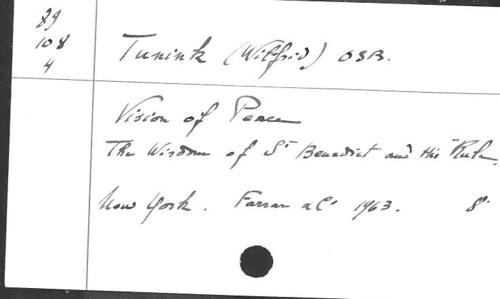 89
108
4
Tunink (Wilfrid) OSB.
Vision of Peace
The Wisdom of St Benedict and His "Rule.
New York. Farrar & Co 1963. 8°